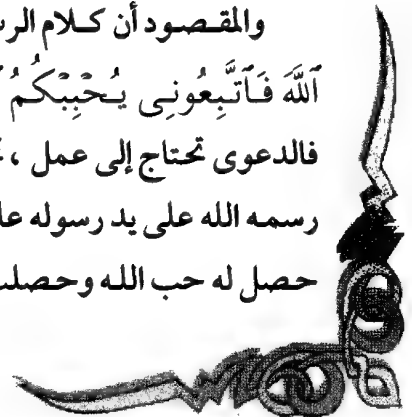 والمقصود أن كلام الر
ٱللَّهَ فَٱتَّبِعُونِى يُحْبِبْكُمُ
فالدعوى تحتاج إلى عمل ،
رسمه الله على يد رسوله عل
حصل له حب الله وحصلت